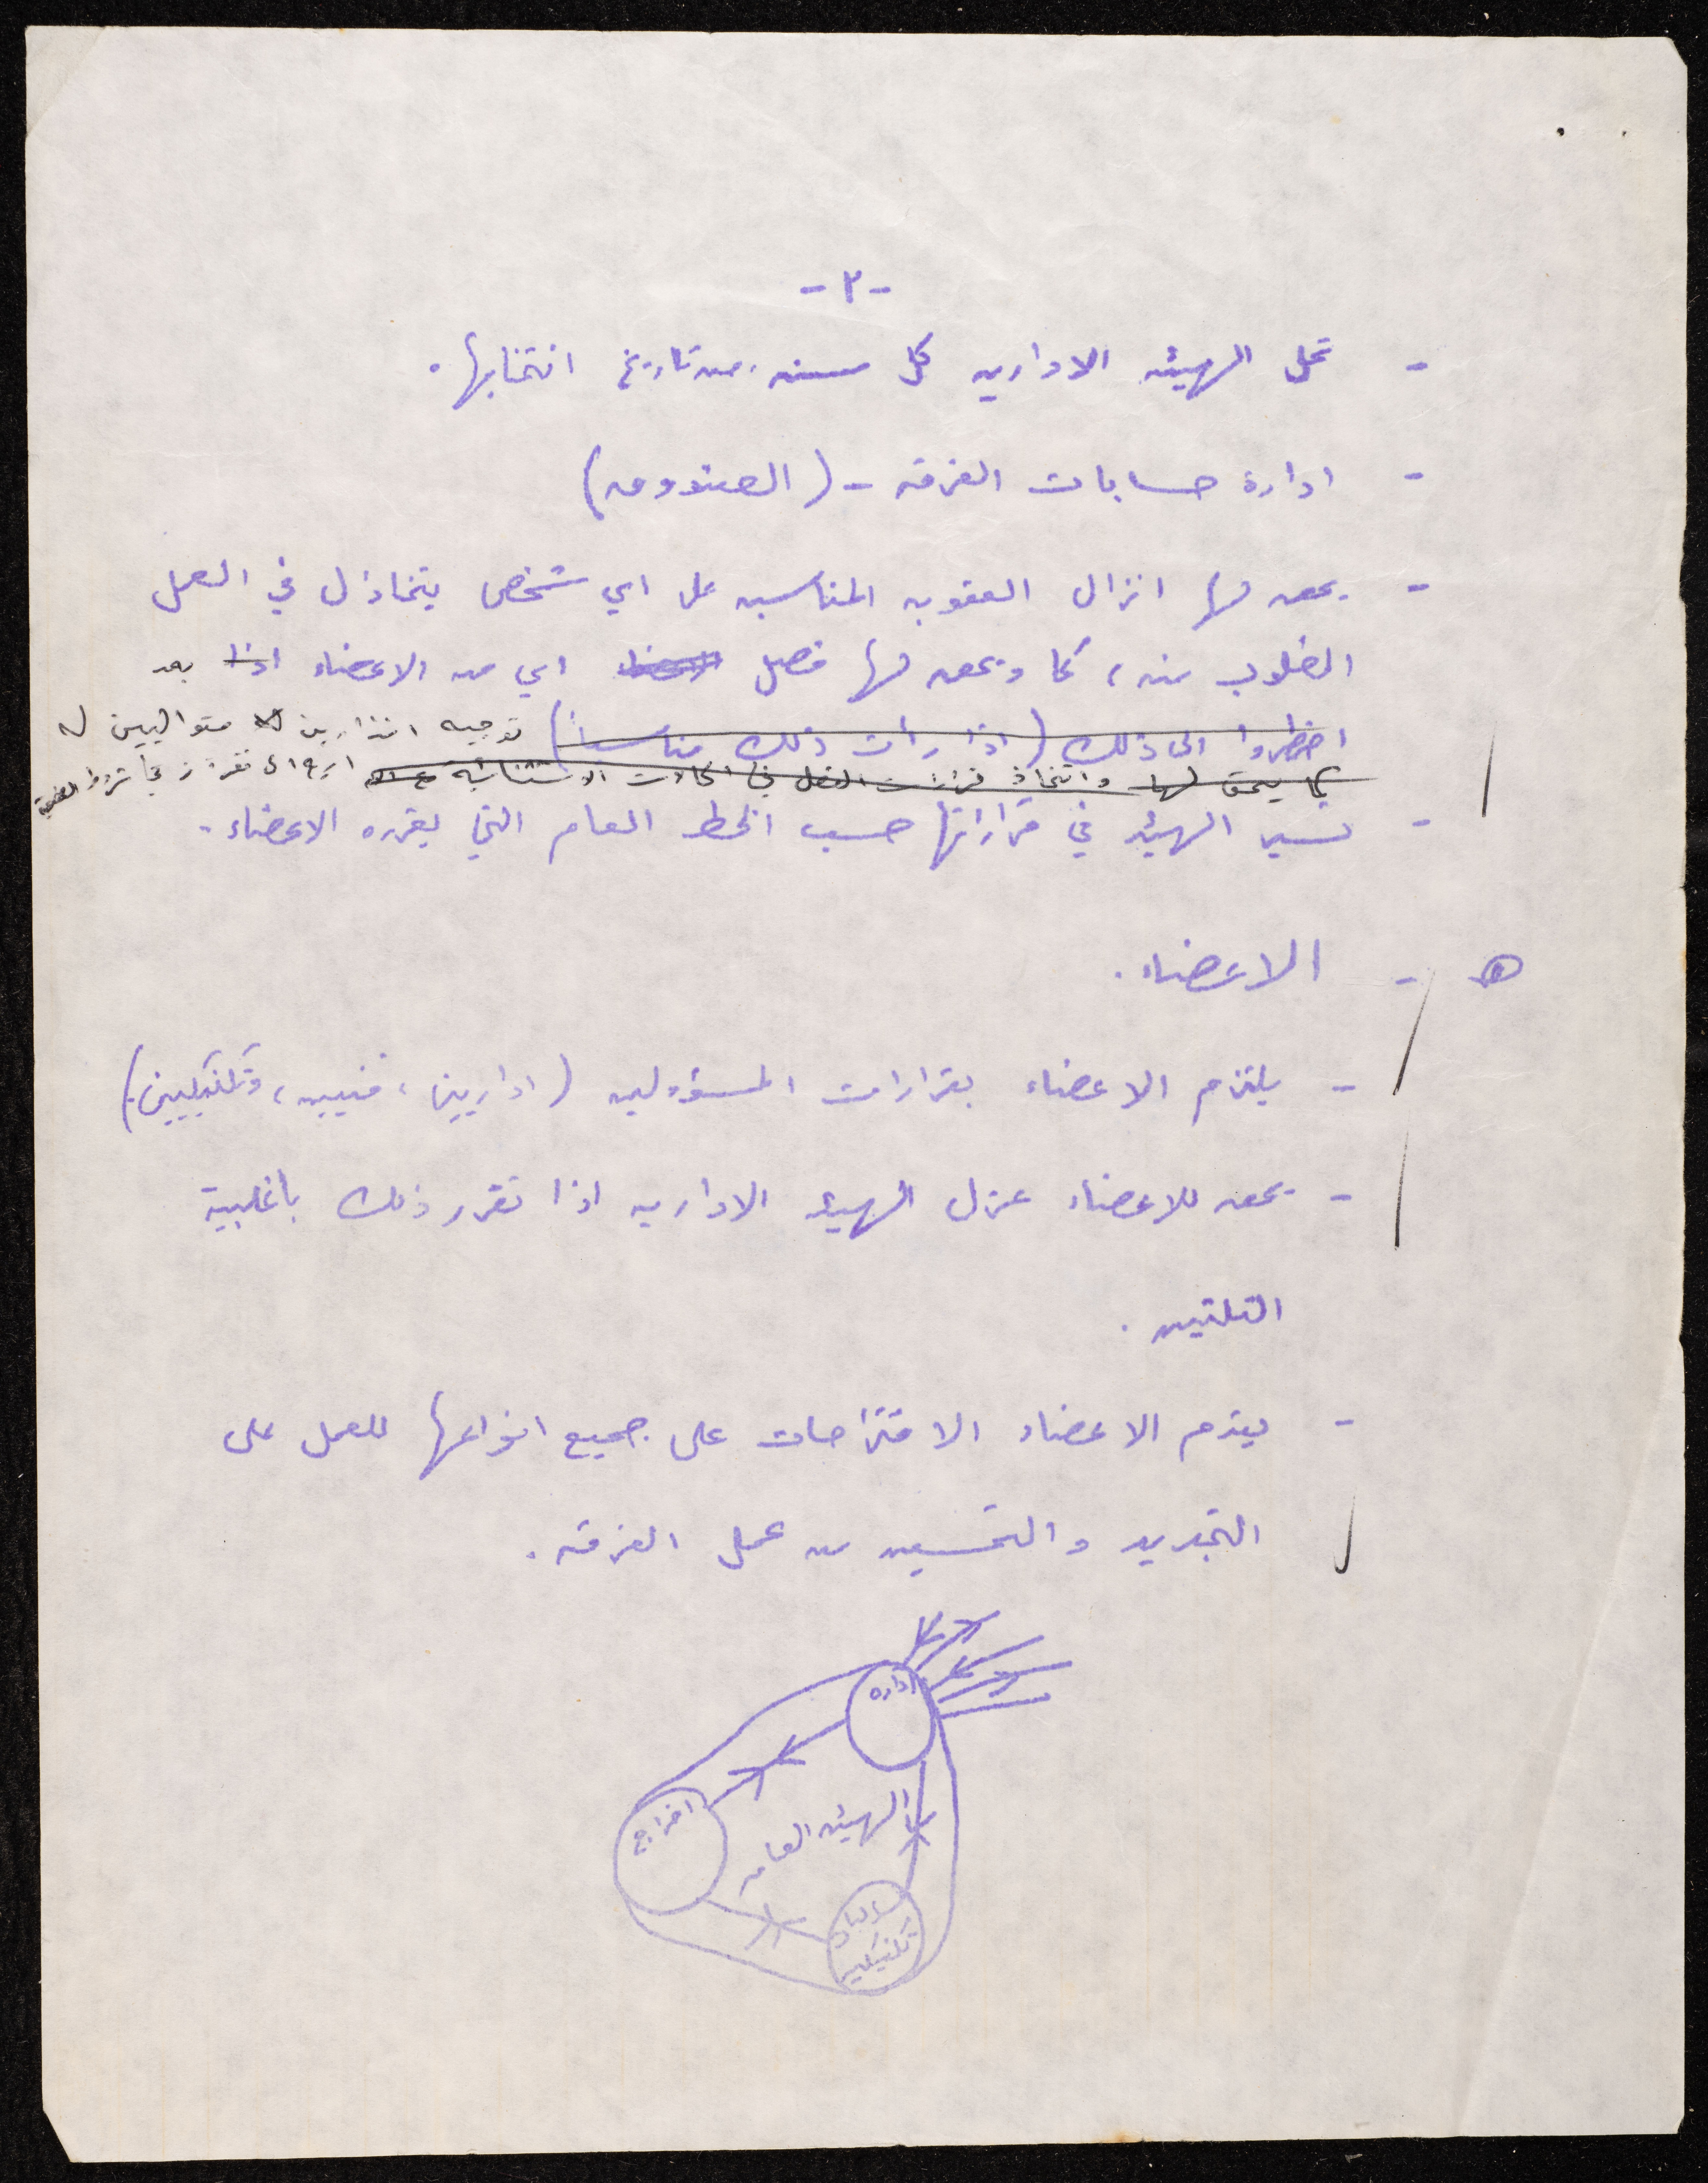 -٢-
- تحل الهيئه الاداريه كل سنه من تاريخ انتخابها.
- ادارة حسابات الفرقه - (الصندوق)
- يحق لها انزال العقوبه المناسبه على اي شخص يتخاذل في العمل
المطلوب منه، كما ويحق لها فصل اي من الاعضاء اذا بعد
اضطروا الى ذلك (اذا رأت ذلك مناسباً) توجيه انذارين متواليين له
كما يحق لها واتخاذ قرارات الفصل في الحالات الاستثنائيه
- تسير الهيئه في قراراتها حسب الخط العام التي يقرره الاعضاء.
ه - الاعضاء.
- يلتزم الاعضاء بقرارات المسؤولين (اداريين، فنيين، وتكنيكيين).
- يحق للاعضاء عزل الهيئه الاداريه اذا تقرر ذلك باغلبية
الثلثين.
- يقدم الاعضاء الاقتراحات على جميع انواعها للعمل على
التجديد والتحسين من عمل الفرقه.
اداره
اخراج
الهيئه العامه
تكنيكيه